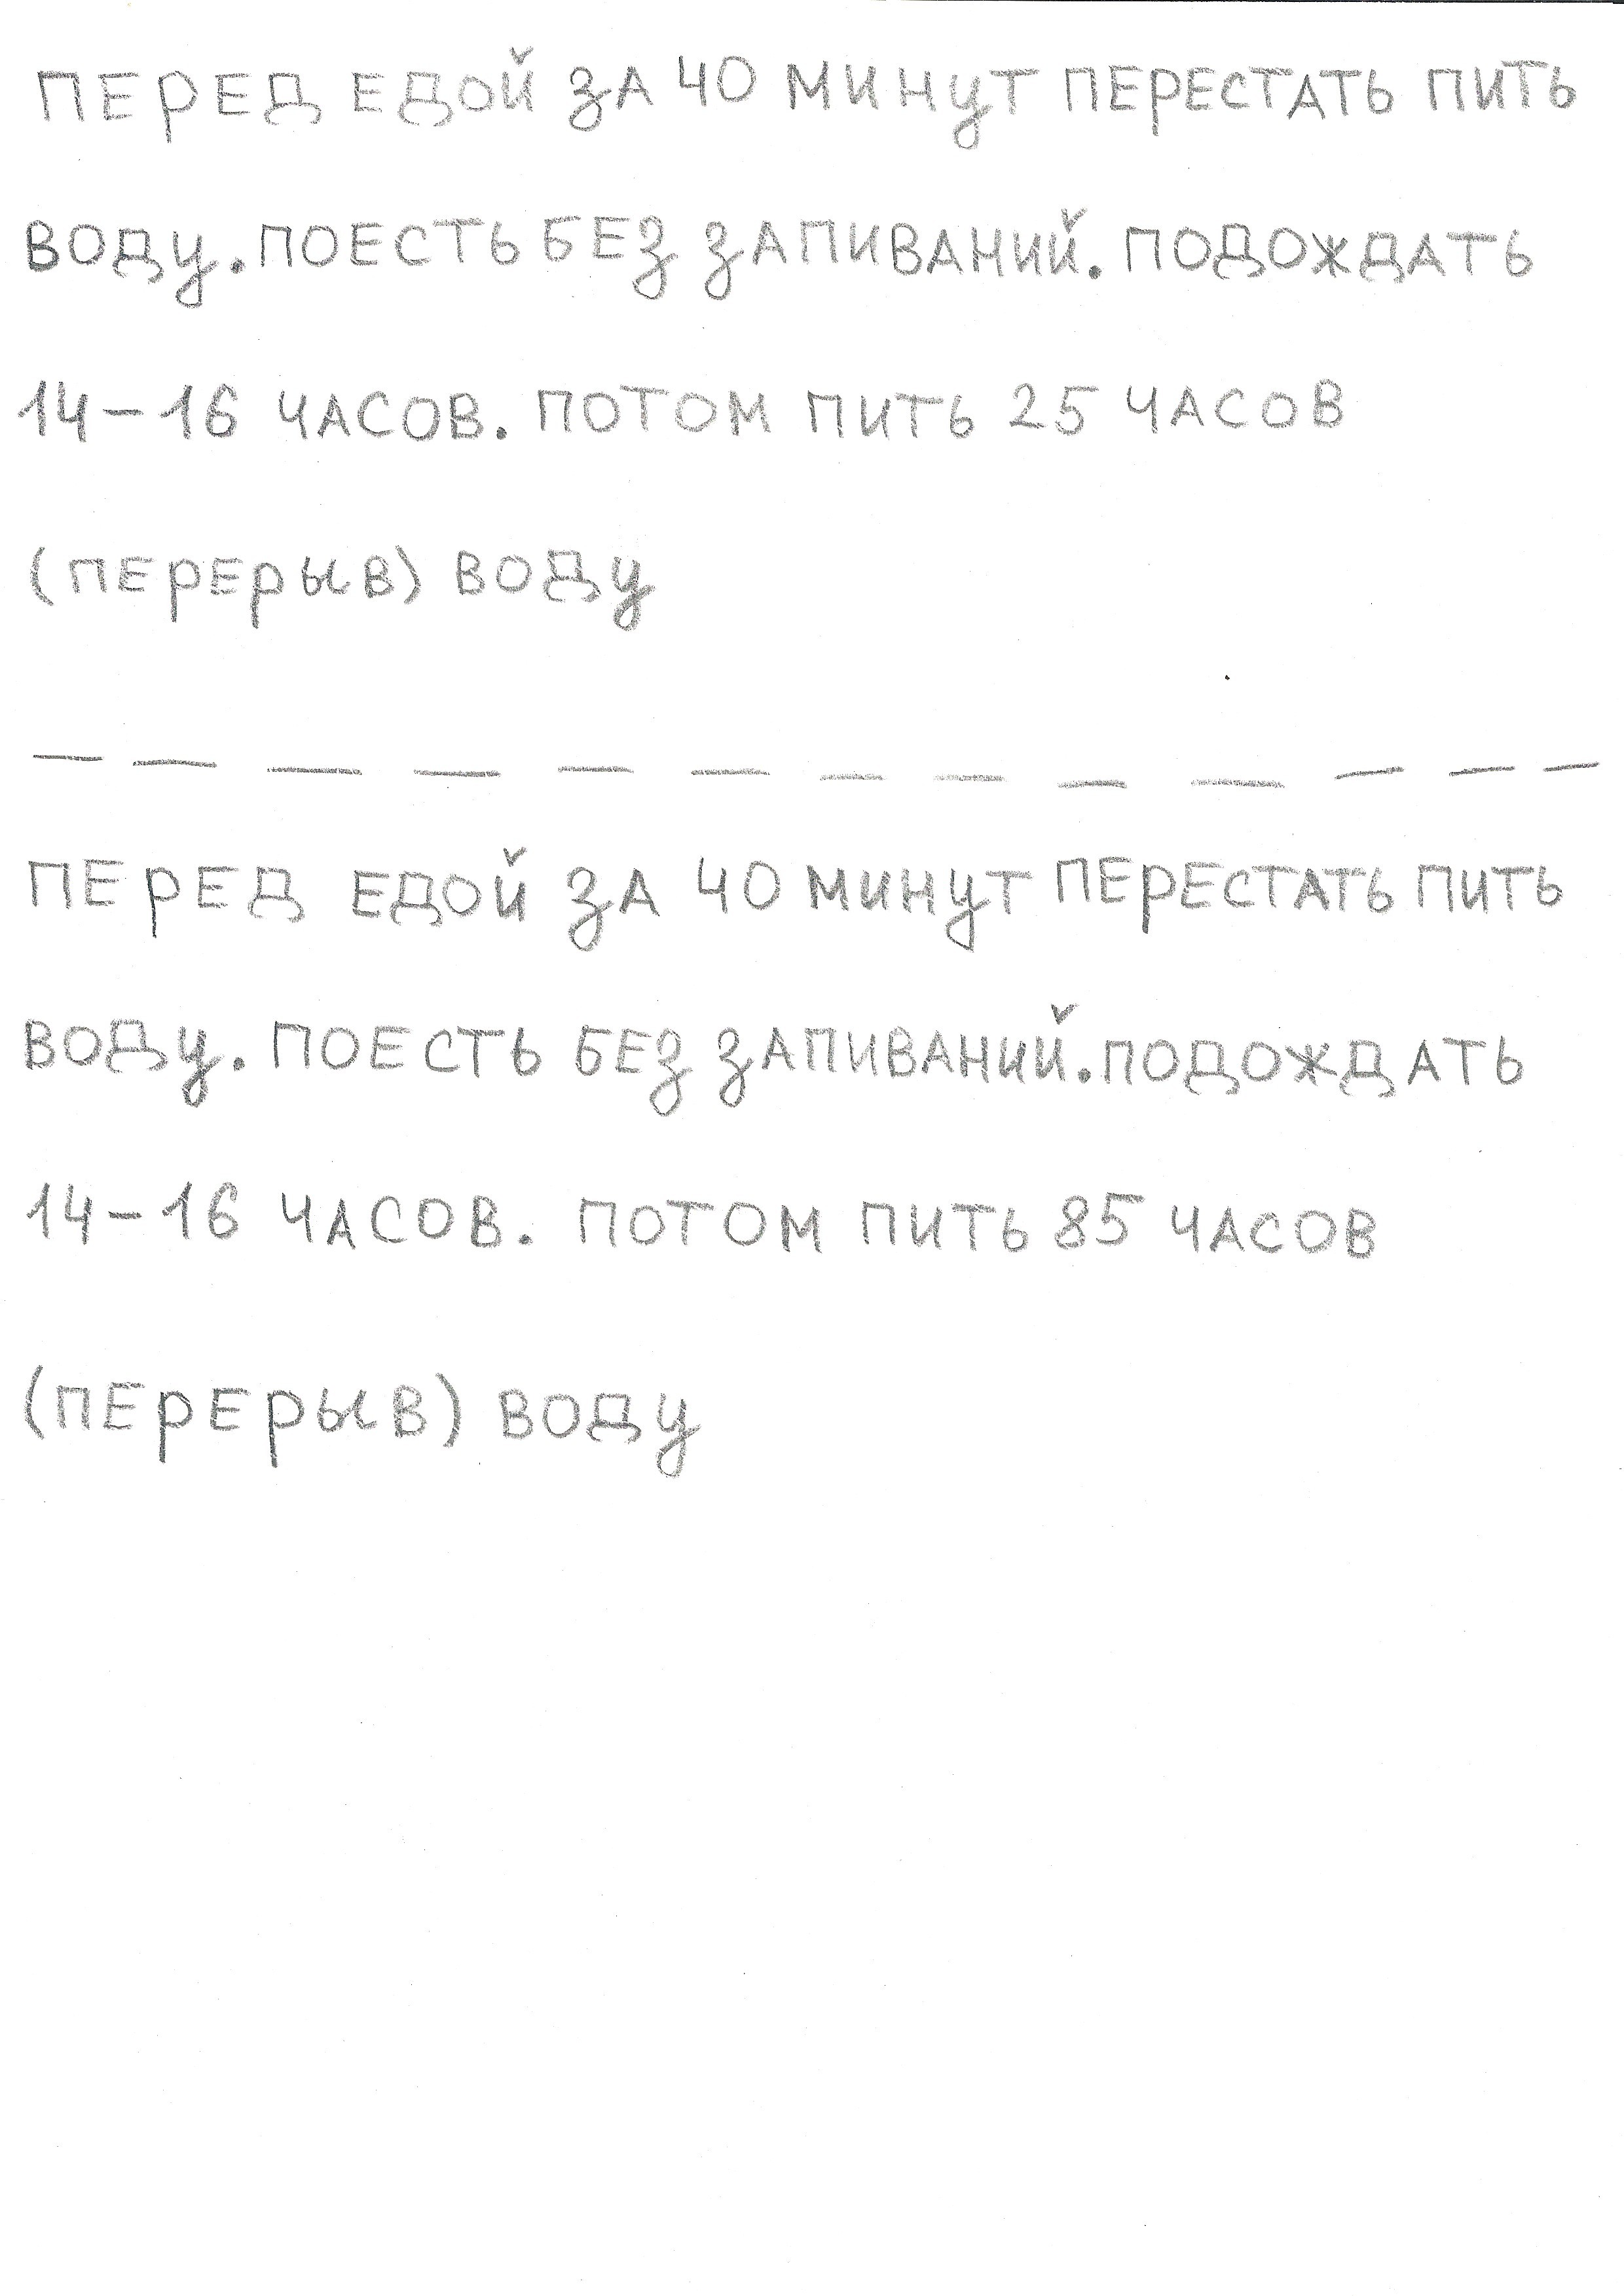 ПЕРЕД ЕДОЙ ЗА 40 МИНУТ ПЕРЕСТАТЬ ПИТЬ
ВОДУ. ПОЕСТЬ БЕЗ ЗАПИВАНИЙ. ПОДОЖДАТЬ
14-16 ЧАСОВ. ПОТОМ ПИТЬ 25 ЧАСОВ
(ПЕРЕРЫВ) ВОДУ
ПЕРЕД ЕДОЙ ЗА 40 МИНУТ ПЕРЕСТАТЬ ПИТЬ
ВОДУ. ПОЕСТЬ БЕЗ ЗАПИВАНИЙ. ПОДОЖДАТЬ
14-16 ЧАСОВ. ПОТОМ ПИТЬ 85 ЧАСОВ
(ПЕРЕРЫВ) ВОДУ